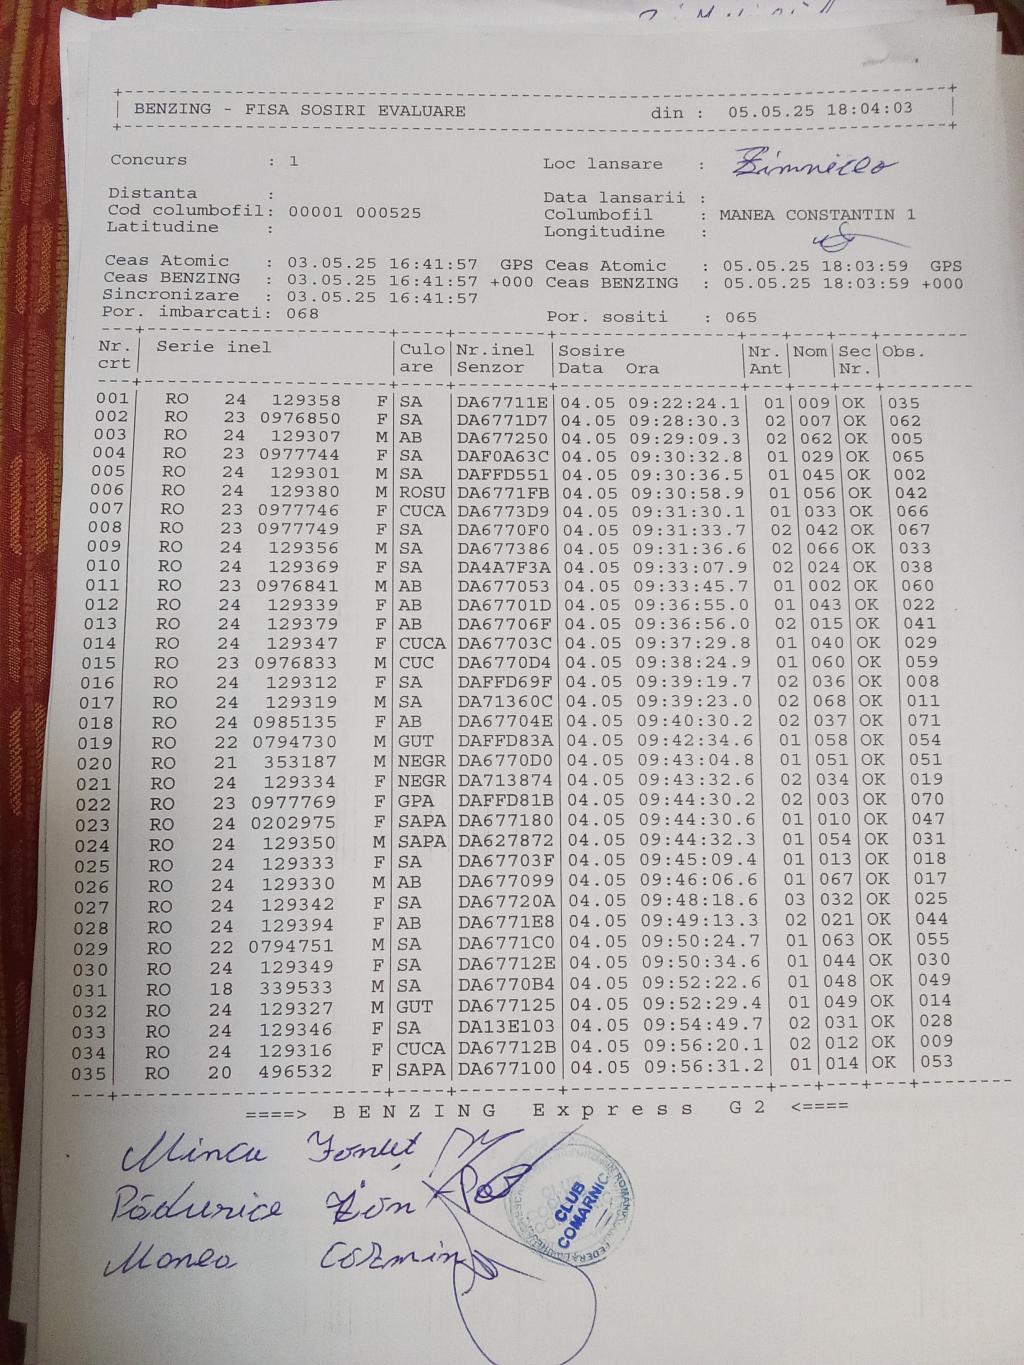 BENZING - FISA SOSIRI EVALUARE din : 05.05.25 18:04:03
Concurs : 1 Loc lansare : Zimnicea
Distanta : Data lansarii :
Cod columbofil: 00001 000525 Columbofil : MANEA CONSTANTIN 1
Latitudine : Longitudine :
Ceas Atomic : 03.05.25 16:41:57 GPS Ceas Atomic : 05.05.25 18:03:59 GPS
Ceas BENZING : 03.05.25 16:41:57 +000 Ceas BENZING : 05.05.25 18:03:59 +000
Sincronizare : 03.05.25 16:41:57
Por. imbarcati: 068 Por. sositi : 065
Nr. Serie inel Culo Nr.inel Sosire Nr. Nom Sec Obs.
crt are Senzor Data Ora Ant Nr.
001 RO 24 129358 F SA DA67711E 04.05 09:22:24.1 01 009 OK 035
002 RO 23 0976850 F SA DA6771D7 04.05 09:28:30.3 02 007 OK 062
003 RO 24 129307 M AB DA677250 04.05 09:29:09.3 02 062 OK 005
004 RO 23 0977744 F SA DAF0A63C 04.05 09:30:32.8 01 029 OK 065
005 RO 24 129301 M SA DAFFD551 04.05 09:30:36.5 01 045 OK 002
006 RO 24 129380 M ROSU DA6771FB 04.05 09:30:58.9 01 056 OK 042
007 RO 23 0977746 F CUCA DA6773D9 04.05 09:31:30.1 01 033 OK 066
008 RO 23 0977749 F SA DA6770F0 04.05 09:31:33.7 02 042 OK 067
009 RO 24 129356 M SA DA677386 04.05 09:31:36.6 02 066 OK 033
010 RO 24 129369 F SA DA4A7F3A 04.05 09:33:07.9 02 024 OK 038
011 RO 23 0976841 M AB DA677053 04.05 09:33:45.7 01 002 OK 060
012 RO 24 129339 F AB DA67701D 04.05 09:36:55.0 01 043 OK 022
013 RO 24 129379 F AB DA67706F 04.05 09:36:56.0 02 015 OK 041
014 RO 24 129347 F CUCA DA67703C 04.05 09:37:29.8 01 040 OK 029
015 RO 23 0976833 M CUC DA6770D4 04.05 09:38:24.9 01 060 OK 059
016 RO 24 129312 F SA DAFFD69F 04.05 09:39:19.7 02 036 OK 008
017 RO 24 129319 M SA DA71360C 04.05 09:39:23.0 02 068 OK 011
018 RO 24 0985135 F AB DA67704E 04.05 09:40:30.2 02 037 OK 071
019 RO 22 0794730 M GUT DAFFD83A 04.05 09:42:34.6 01 058 OK 054
020 RO 21 353187 M NEGR DA6770D0 04.05 09:43:04.8 01 051 OK 051
021 RO 24 129334 F NEGR DA713874 04.05 09:43:32.6 02 034 OK 019
022 RO 23 0977769 F GPA DAFFD81B 04.05 09:44:30.2 02 003 OK 070
023 RO 24 0202975 F SAPA DA677180 04.05 09:44:30.6 01 010 OK 047
024 RO 24 129350 M SAPA DA627872 04.05 09:44:32.3 01 054 OK 031
025 RO 24 129333 F SA DA67703F 04.05 09:45:09.4 01 013 OK 018
026 RO 24 129330 M AB DA677099 04.05 09:46:06.6 01 067 OK 017
027 RO 24 129342 F SA DA67720A 04.05 09:48:18.6 03 032 OK 025
028 RO 24 129394 F AB DA6771E8 04.05 09:49:13.3 02 021 OK 044
029 RO 22 0794751 M SA DA6771C0 04.05 09:50:24.7 01 063 OK 055
030 RO 24 129349 F SA DA67712E 04.05 09:50:34.6 01 044 OK 030
031 RO 18 339533 M SA DA6770B4 04.05 09:52:22.6 01 048 OK 049
032 RO 24 129327 M GUT DA677125 04.05 09:52:29.4 01 049 OK 014
033 RO 24 129346 F SA DA13E103 04.05 09:54:49.7 02 031 OK 028
034 RO 24 129316 F CUCA DA67712B 04.05 09:56:20.1 02 012 OK 009
035 RO 20 496532 F SAPA DA677100 04.05 09:56:31.2 01 014 OK 053
====> BENZING Express G2 <====
Mincu Ionuț
Pădurice Ion
Manea Cozmin
CLUB
COMARNIC